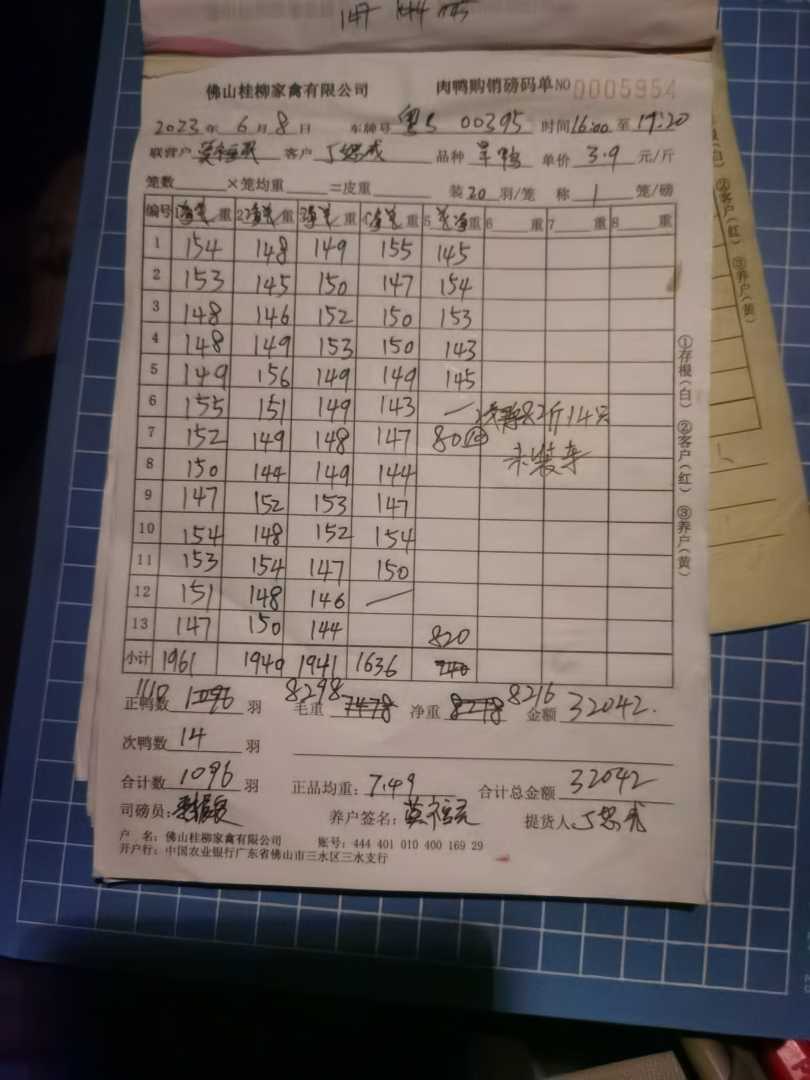 147 144 145
佛山桂柳家禽有限公司 肉鸭购销磅码单 NO 0005954
2023 年 6 月 8 日 车牌号 粤S 00395 时间 16:00 至 19:20
联营户 客户 品种 单价 3.9 元/斤
笼数 ×笼均重 =皮重 装 20 羽/笼 称 1 笼/磅
编号 1 重 2 重 3 重 4 重 5 重 6 重 7 重 8 重
1 154 148 149 155 145
2 153 145 150 147 154
3 148 146 152 150 153
4 148 149 153 150 143
5 149 156 149 149 145
6 155 151 149 143 — 82斤14只
7 152 149 148 147 80 未装车
8 150 144 149 144
9 147 152 153 147
10 154 148 152 154
11 153 154 147 150
12 151 148 146 —
13 147 150 144 820
小计 1961 1940 1941 1636 740
正鸭数 1110 1096 羽 毛重 8298 7478 净重 8278 8216 金额 32042.
次鸭数 14 羽
合计数 1096 羽 正品均重: 7.49 合计总金额 32042
司磅员: 养户签名: 提货人
户 名: 佛山桂柳家禽有限公司 账号: 444 401 010 400 169 29
开户行: 中国农业银行广东省佛山市三水区三水支行
①存根(白) ②客户(红) ③养户(黄)
(白) ②客户(红) ③养户(黄)